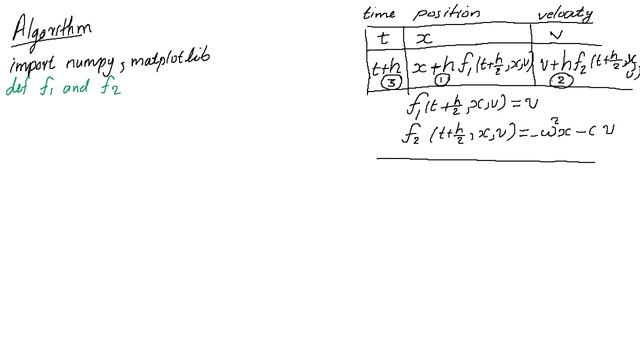 Algorithm
import numpy, matplotlib
def f₁ and f₂
time position velocity
t x v
t+h x+h f₁(t+h/2, x, v) v+h f₂(t+h/2, x, v)
③ ① ②
f₁(t+h/2, x, v) = v
f₂ (t+h/2, x, v) = -ω²x - c v